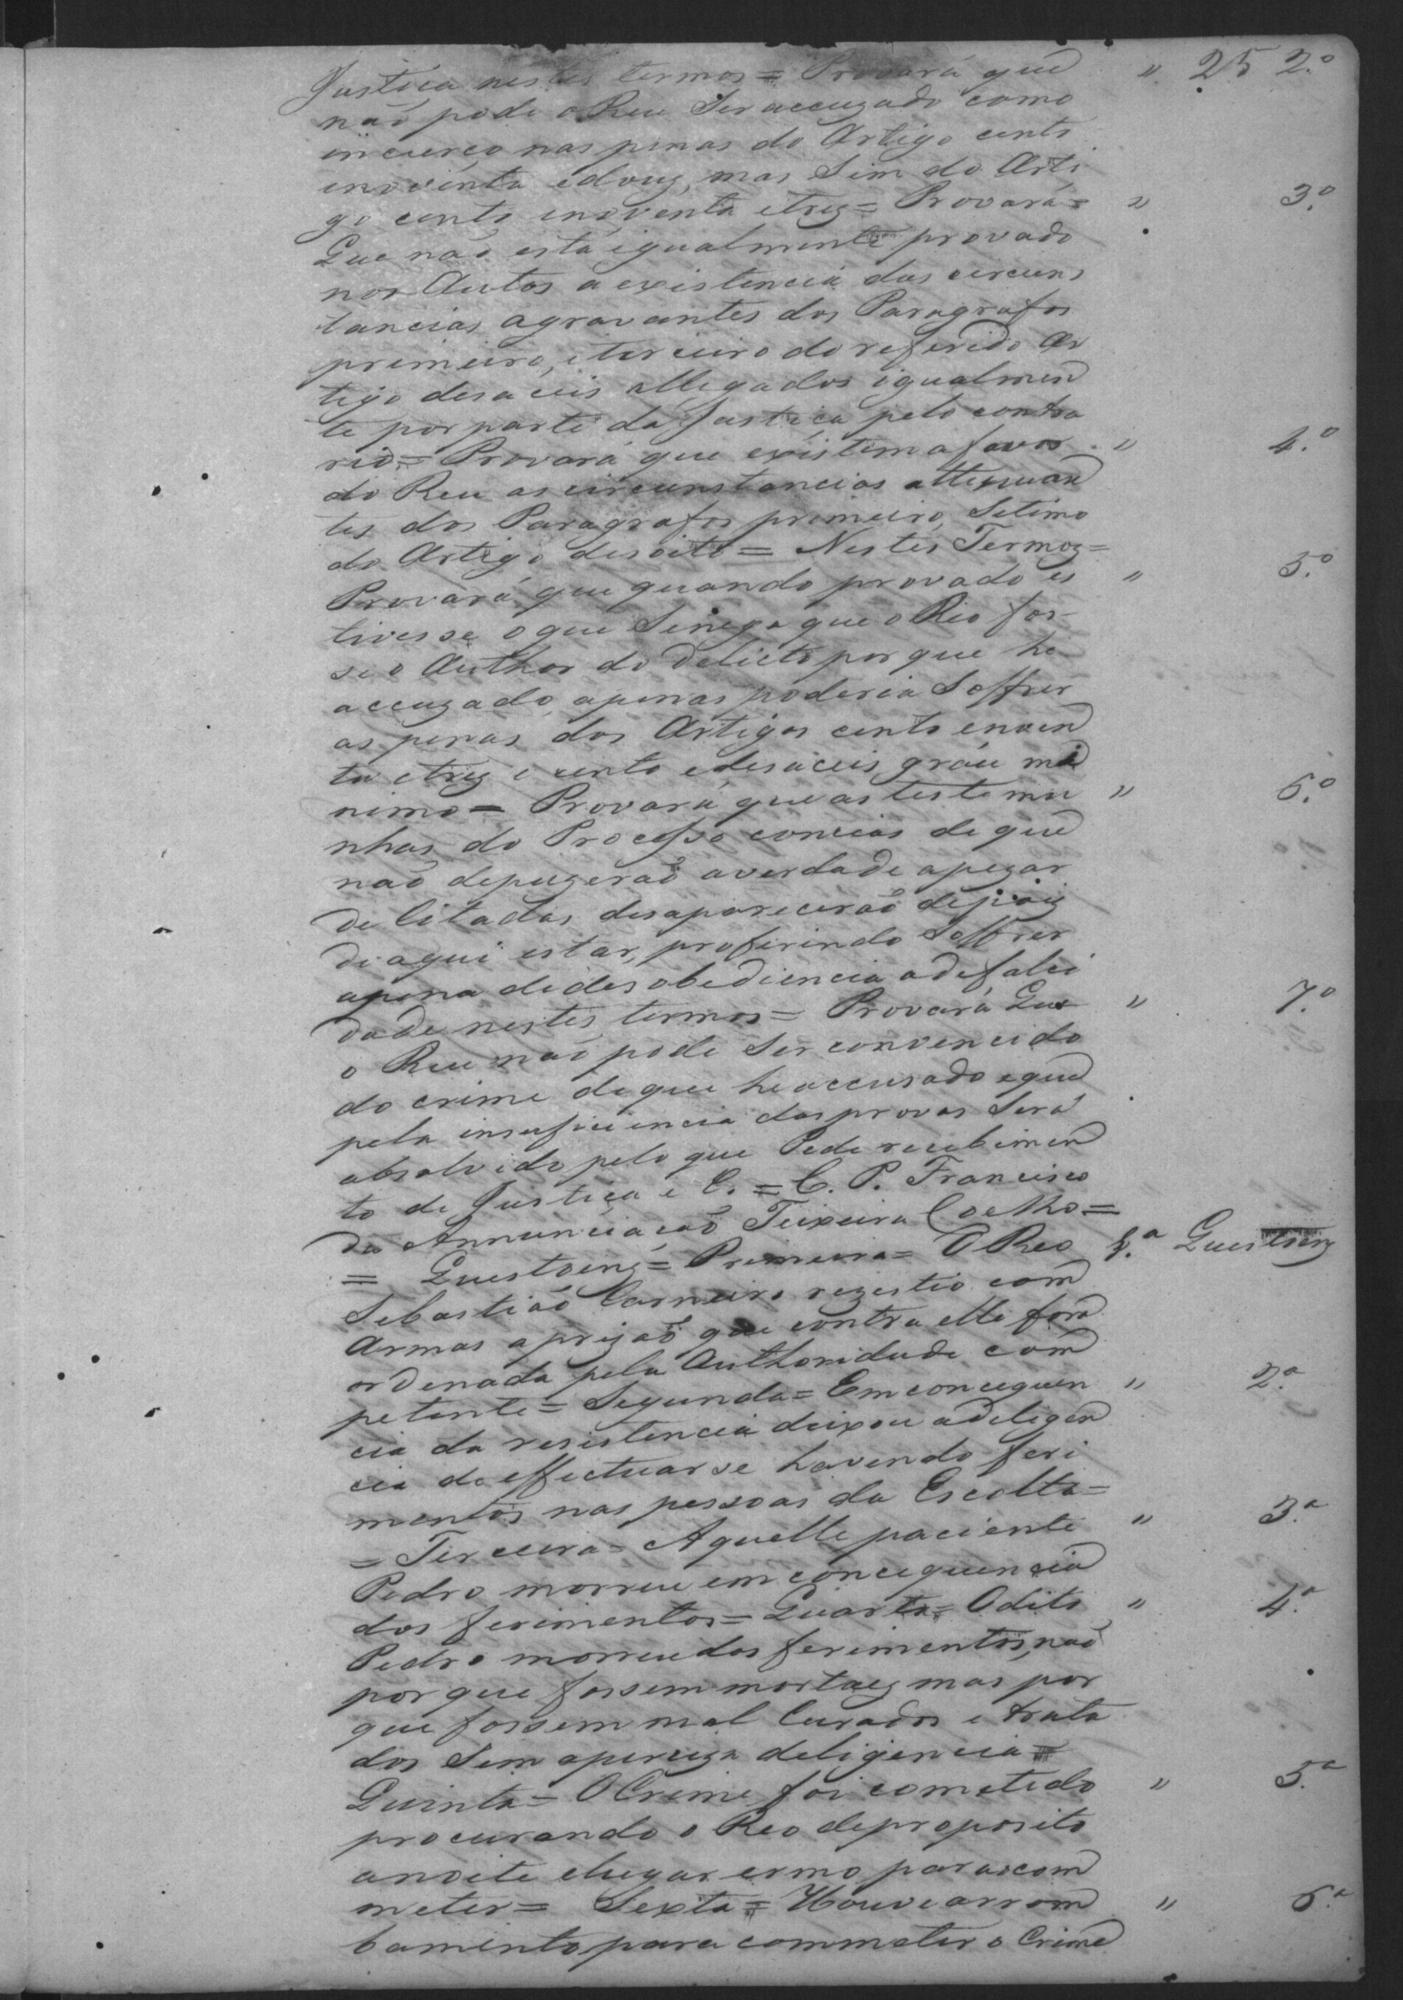 Justiça nestes termos = Provará que " 25 2.º
não pode o Reu Ser accuzado como
incurço nas penas do Artigo cento
enoventa edouz, mas Sim do Arti
go cento enoventa etrez = Provará = " 3.º
Que não está igualmente provado
nos Autos a existencia das circuns
tancias agravantes dos Paragrafos
primeiro, eterceiro do referido Ar
tigo desaceis allegados igualmen
te por parte da Justiça, pelo contra
rio = Provará que existem a favor " 4.º
do Reu as circunstancias attenuan
tes dos Paragrafos primeiro, Setimo
do Artigo desoito = Nestes Termoz =
Provará que quando provado es " 5.º
tivesse o que Senega que o Reo fos-
se o Author do delicto porque he
accuzado, apenas poderia Soffrer
as penas dos Artigos cento enoven
ta etrez e cento edesaceis gráu mi
nimo = Provará que as testemu " 6.º
nhas do Processo concias de que
não depuzerão averdade apezar
de Citadas, desaparecerão depois
di aqui estar, proferindo Soffrer
apena dedesobediencia adefalci
dade nestes termos = Provará Que " 7.º
o Reu não pode Ser convencido
do crime de que he accusado eque
pela insuficiencia das provas Será
absolvido pelo que Pede recebimen
to de Justiça e C. = C. P. Francisco
da Annunciação Teixeira Coelho =
= Questoenz = Primeira = O Reo 1.ª Questoenz
Sebastião Carneiro rezestio com
Armas aprizão que contra elle fora
ordenada pela Authoridade com
petente = Segunda = Em concequen " 2.ª
cia da resistencia deixou adeligen
cia de effectuarse havendo feri
mentos nas pessoas da Escolta =
= Terceira = Aquelle paciente " 3.ª
Pedro morreu em concequencia
dos ferimentos = Quarta = Odito " 4.ª
Pedro morreu dos ferimentos, não
porque fossem mortaez mas por
que fossem mal Curados e trata
dos Sem apreciza deligencia =
Quinta = O Crime foi cometido " 5.ª
procurando o Reo depropozito
anoite elugar ermo para o com
meter = Sexta = Houve arrom " 6.ª
bamento para commeter o Crime